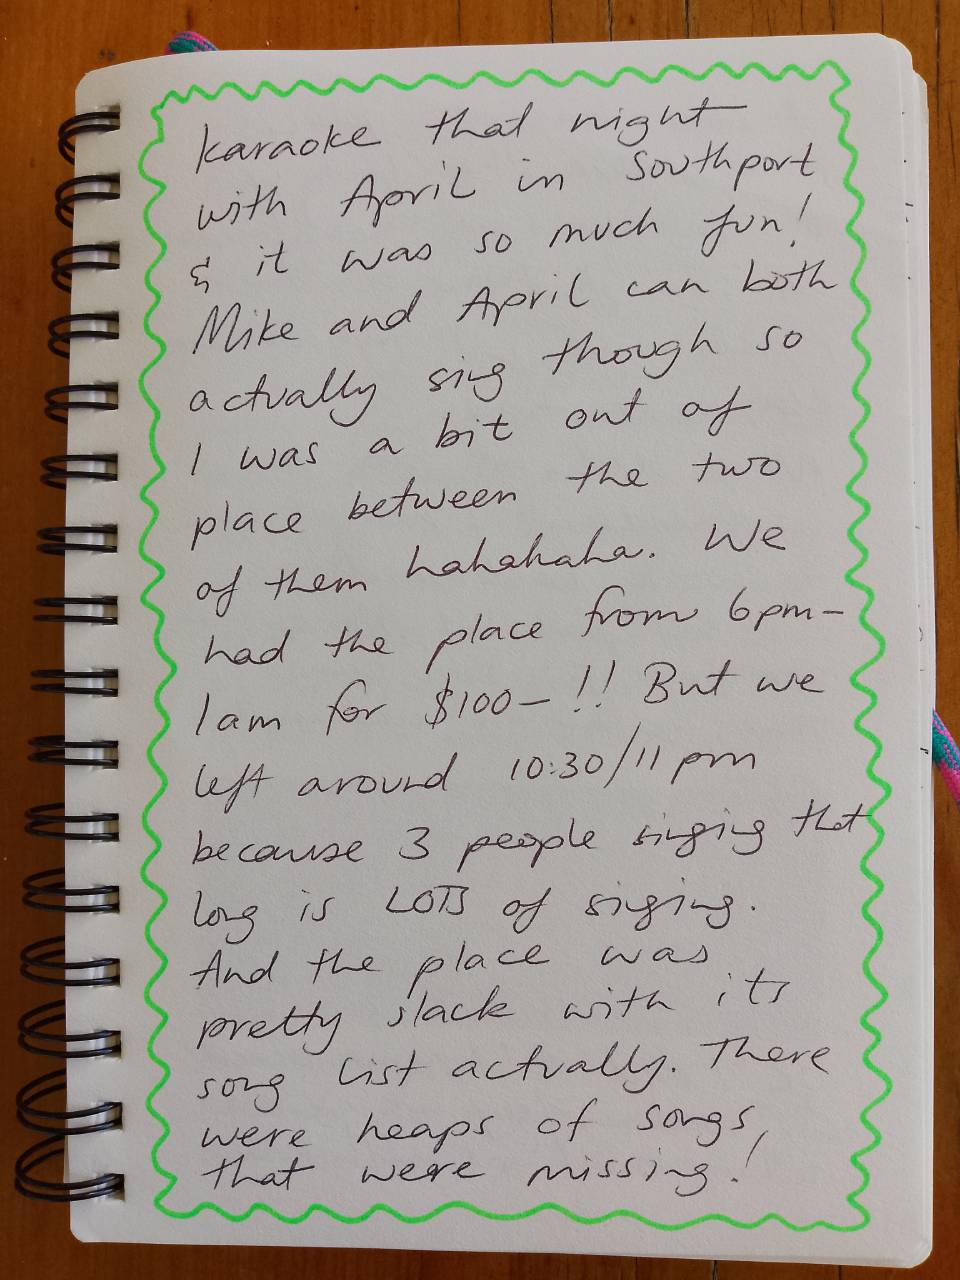 karaoke that night
with April in Southport
& it was so much fun!
Mike and April can both
actually sing though so
I was a bit out of
place between the two
of them hahahaha. We
had the place from 6pm-
1am for $100-!! But we
left around 10:30/11pm
because 3 people singing that
long is LOTS of singing.
And the place was
pretty slack with its
song list actually. There
were heaps of songs
that were missing!